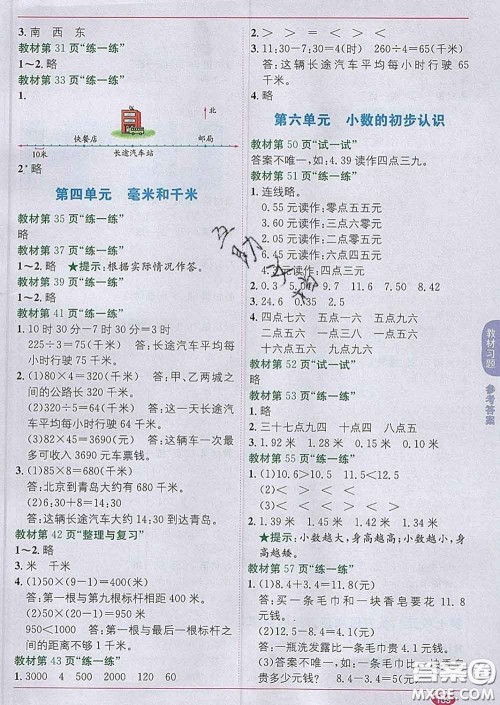 3. 南 西 东
教材第 31 页“练一练”
1~2. 略
教材第 33 页“练一练”
1.
北
快餐店 邮局
10米 长途汽车站
2* 略
第四单元 毫米和千米
教材第 35 页“练一练”
略
教材第 37 页“练一练”
1~2. 略 ★提示：根据实际情况作答。
教材第 39 页“练一练”
1~2. 略
教材第 41 页“练一练”
1. 10 时 30 分－7 时 30 分＝3 时
225÷3＝75(千米) 答：长途汽车平均
每小时行驶 75 千米。
2. (1)80×4＝320(千米) 答：甲、乙两城之
间的公路长 320 千米。
(2)320÷5＝64(千米) 答：这一天长途
汽车平均每小时行驶 64 千米。
(3)82×45＝3690(元) 答：这辆车一次最
多可收入 3690 元车票钱。
3. (1)85×8＝680(千米)
答：北京到青岛大约有 680 千米。
(2)6:30+8＝14:30
答：这辆长途汽车大约 14:30 到达青岛。
教材第 42 页“整理与复习”
1~2. 略
3. 米 千米
4. (1)50×(9－1)＝400(米)
答：第一根与第九根标杆相距 400 米。
(2)50×(20－1)＝950(米)
950＜1000 答：第一根与最后一根标杆之间
的距离不够 1 千米。
教材第 43 页“练一练”
1. 3000 4 500 1 5000 10
2. ＞ ＞ ＝ ＞ ＜ ＜
3. (1)11:30－7:30＝4(时) 260÷4＝65(千米)
答：这辆长途汽车平均每小时行驶 65
千米。
(2)略
4. 略
第六单元 小数的初步认识
教材第 50 页“试一试”
答案不唯一，如：4.39 读作四点三九。
教材第 51 页“练一练”
1. 连线略。
0.55 元读作：零点五五元
3.60 元读作：三点六零元
5.05 元读作：五点零五元
4.3 元读作：四点三元
2. 0.3 5.08 9.7 11.6 7.50 8.42
3. 24.6 0.35
4. 四点七六 五点一六 一点五六
二点六五 一点五六 五点九六
十六点五六 九点六六
教材第 52 页“试一试”
略
教材第 53 页“练一练”
1. 略
2. 三十七点九四 十点四 八点五
3. 1.92 米 1.28 米 0.94 米 0.40 米
教材第 55 页“练一练”
1. (1)10.6＞10.5 11.5＜11.6
(2)＞ ＜ ＞ ＜
(3)＜ ＜ ＜ ＜
2. 1.39 1.42 1.44 1.45 1.47
★提示：小数越大，身高越高；小数越小，
身高越矮。
教材第 57 页“练一练”
1. (1)8.4+3.4＝11.8(元)
答：买一条毛巾和一块香皂要花 11.8
元钱。
(2)12.5－8.4＝4.1(元)
答：一瓶洗发露比一条毛巾贵 4.1 元钱。
(3)答案不唯一，如：一条毛巾比一块香皂
贵多少元钱？ 8.4－3.4＝5(元)
教材习题
参考答案
109
答案圈
MXQE.COM